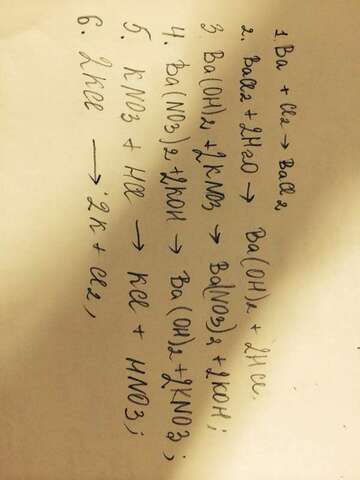 1. Ba + Cl2 → BaCl2
2. BaCl2 + 2H2O → Ba(OH)2 + 2HCl.
3. Ba(OH)2 + 2KNO3 → Ba(NO3)2 + 2KOH;
4. Ba(NO3)2 + 2KOH → Ba(OH)2 + 2KNO3;
5. KNO3 + HCl → KCl + HNO3;
6. 2KCl → 2K + Cl2;